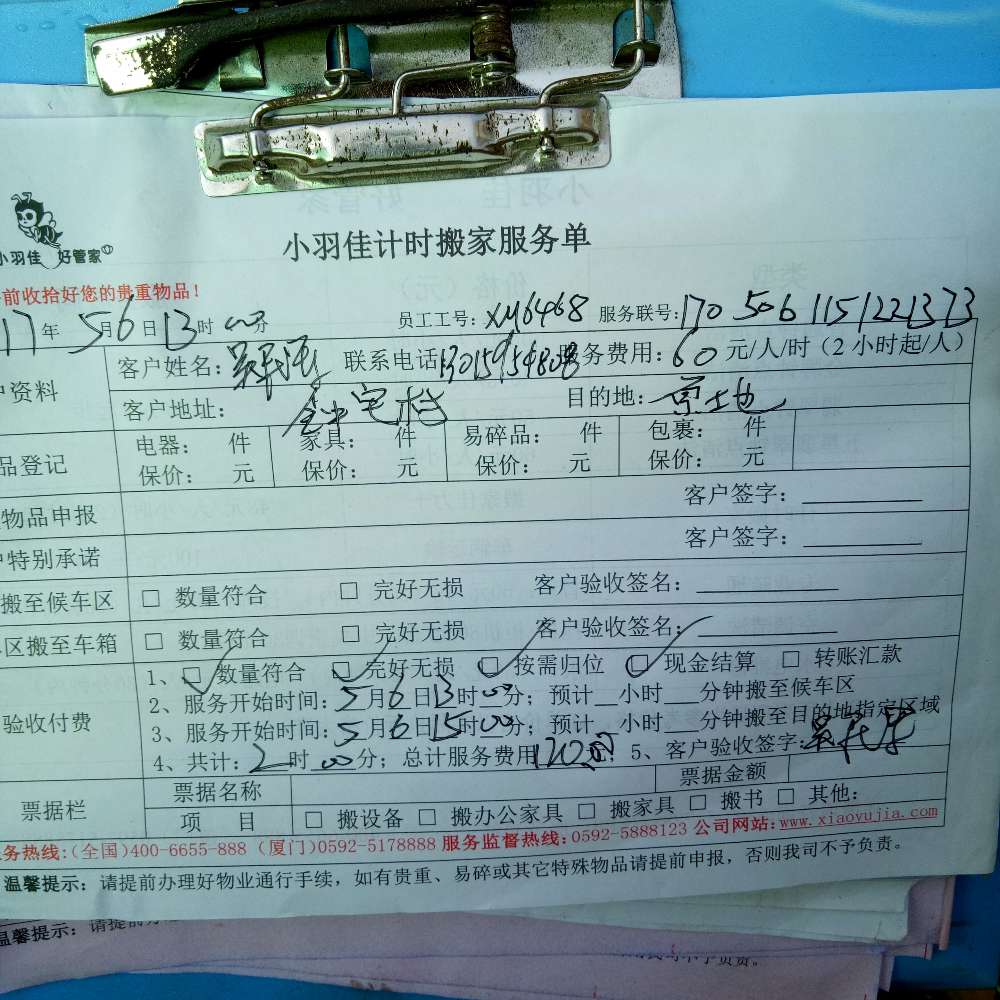 小羽佳 好管家
小羽佳计时搬家服务单
前收拾好您的贵重物品！
17年5月6日13时00分 员工工号：XM6468 服务联号：170 506 1151221373
户资料 客户姓名： 联系电话 服务费用：60元/人/时（2小时起/人）
客户地址： 目的地：原地
品登记 电器： 件 家具： 件 易碎品： 件 包裹： 件
保价： 元 保价： 元 保价： 元 保价： 元
物品申报 客户签字：
户特别承诺 客户签字：
搬至候车区 □ 数量符合 □ 完好无损 客户验收签名：
区搬至车箱 □ 数量符合 □ 完好无损 客户验收签名：
验收付费 1、□ 数量符合 □ 完好无损 □ 按需归位 □ 现金结算 □ 转账汇款
2、服务开始时间：5月6日13时00分；预计__小时___分钟搬至候车区
3、服务开始时间：5月6日15时00分；预计__小时___分钟搬至目的地指定区域
4、共计：2时00分；总计服务费用120元 5、客户验收签字：
票据栏 票据名称 票据金额
项 目 □ 搬设备 □ 搬办公家具 □ 搬家具 □ 搬书 □ 其他：
务热线：（全国）400-6655-888（厦门）0592-5178888 服务监督热线：0592-5888123 公司网站：www.xiaoyujia.com
温馨提示：请提前办理好物业通行手续，如有贵重、易碎或其它特殊物品请提前申报，否则我司不予负责。
温馨提示：请提前